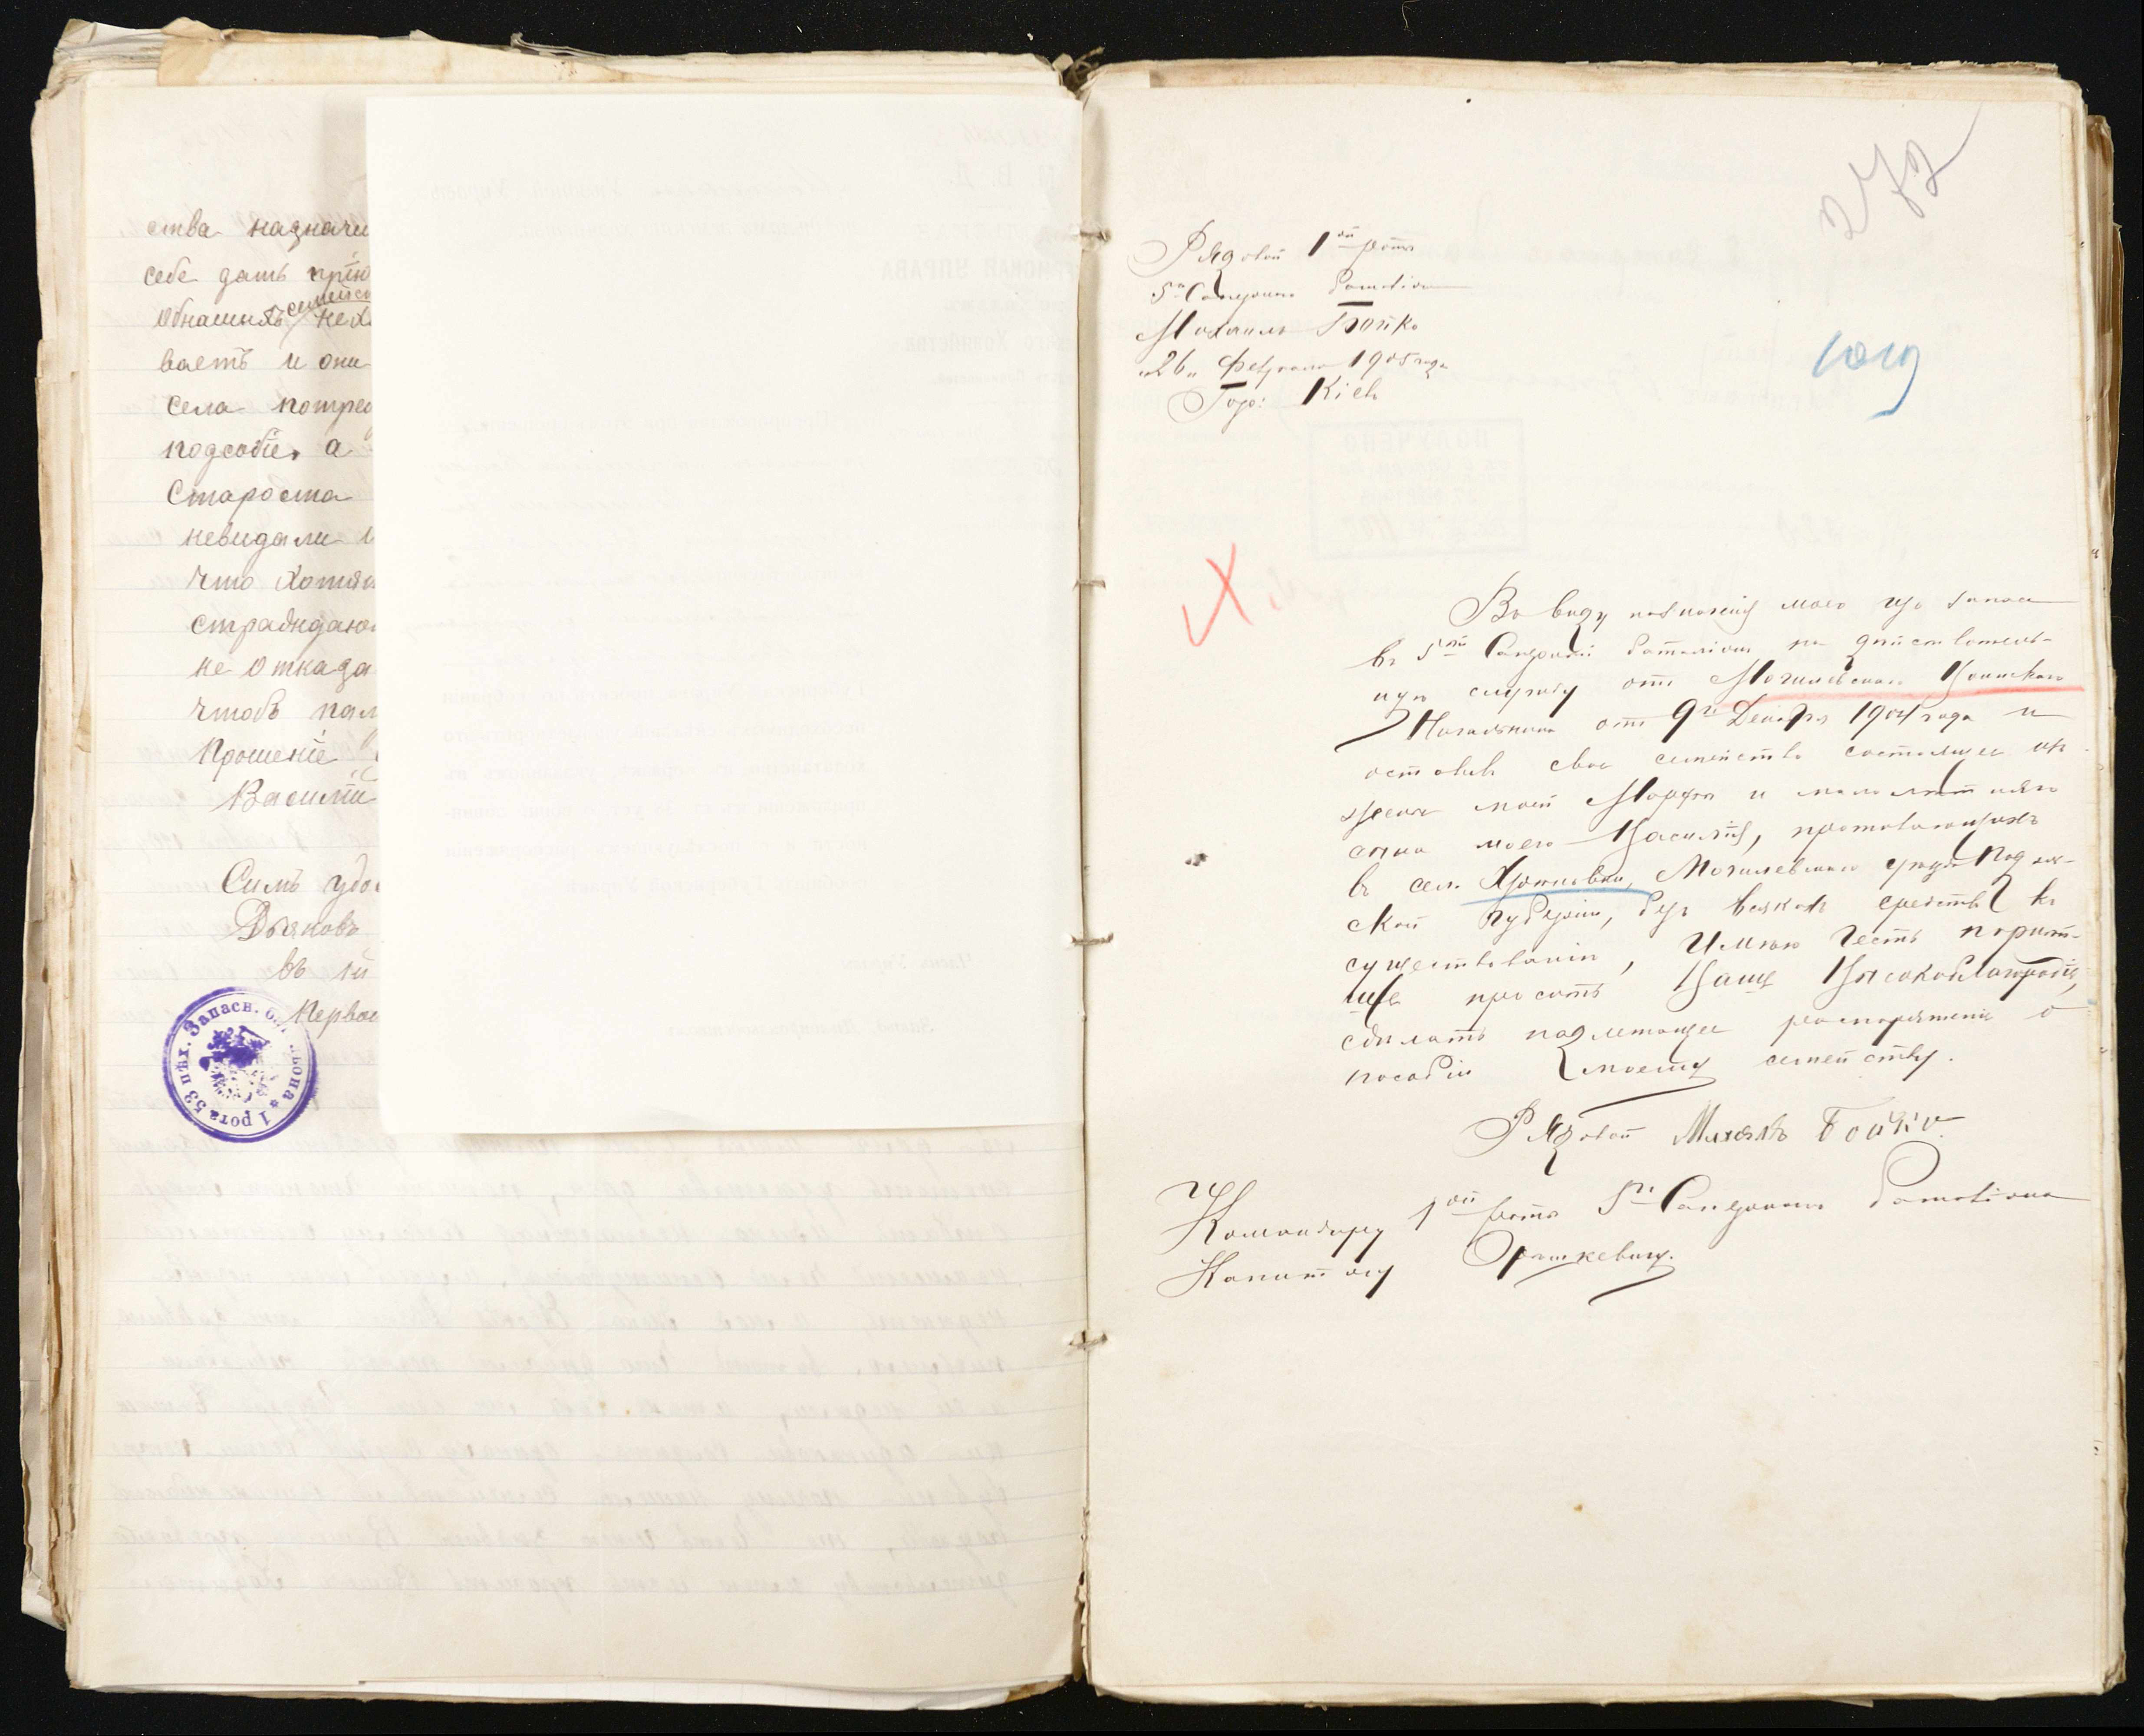 ства назначи
себе дать прію
семейс
Обнашихъ не
ваетъ и они
села потре
подсобіе, а
Староста
невидали
что хотя
страдидаю
не откада
чтобъ пам
Прошеніе
Василій
Симъ удо
Дьяковъ
въ
Первой
53 пѣх. Запасн. ба она * 1 рота
272
Рядовой 1ой роты
5го Сапернаго баталіона
Михаилъ Бойко
"26" Февраля 1905 года
Гор: Кіевъ
1019
Въ виду назначенія моего изъ запаса
въ 5ый Саперный баталіонъ на дѣйствитель-
ную службу отъ Могилевскаго Воинскаго
Начальника отъ 9го Декабря 1904 года и
оставивъ свое семейство состоящее изъ
жены моей Марфы и малолѣтняго
сына моего Василія, проживающихъ
въ сел. Могилевскаго уѣзда Подоль-
ской губерніи, безъ всякихъ средствъ къ
существованію, Имѣю честь покорнѣ-
ше просить Ваше Высокоблагородіе,
сдѣлать надлежащее распоряженіе о
пособіи моему семейству.
Рядовой Михаилъ Бойко.
Командиру 1ой роты 5го Сапернаго баталіона
Капитану